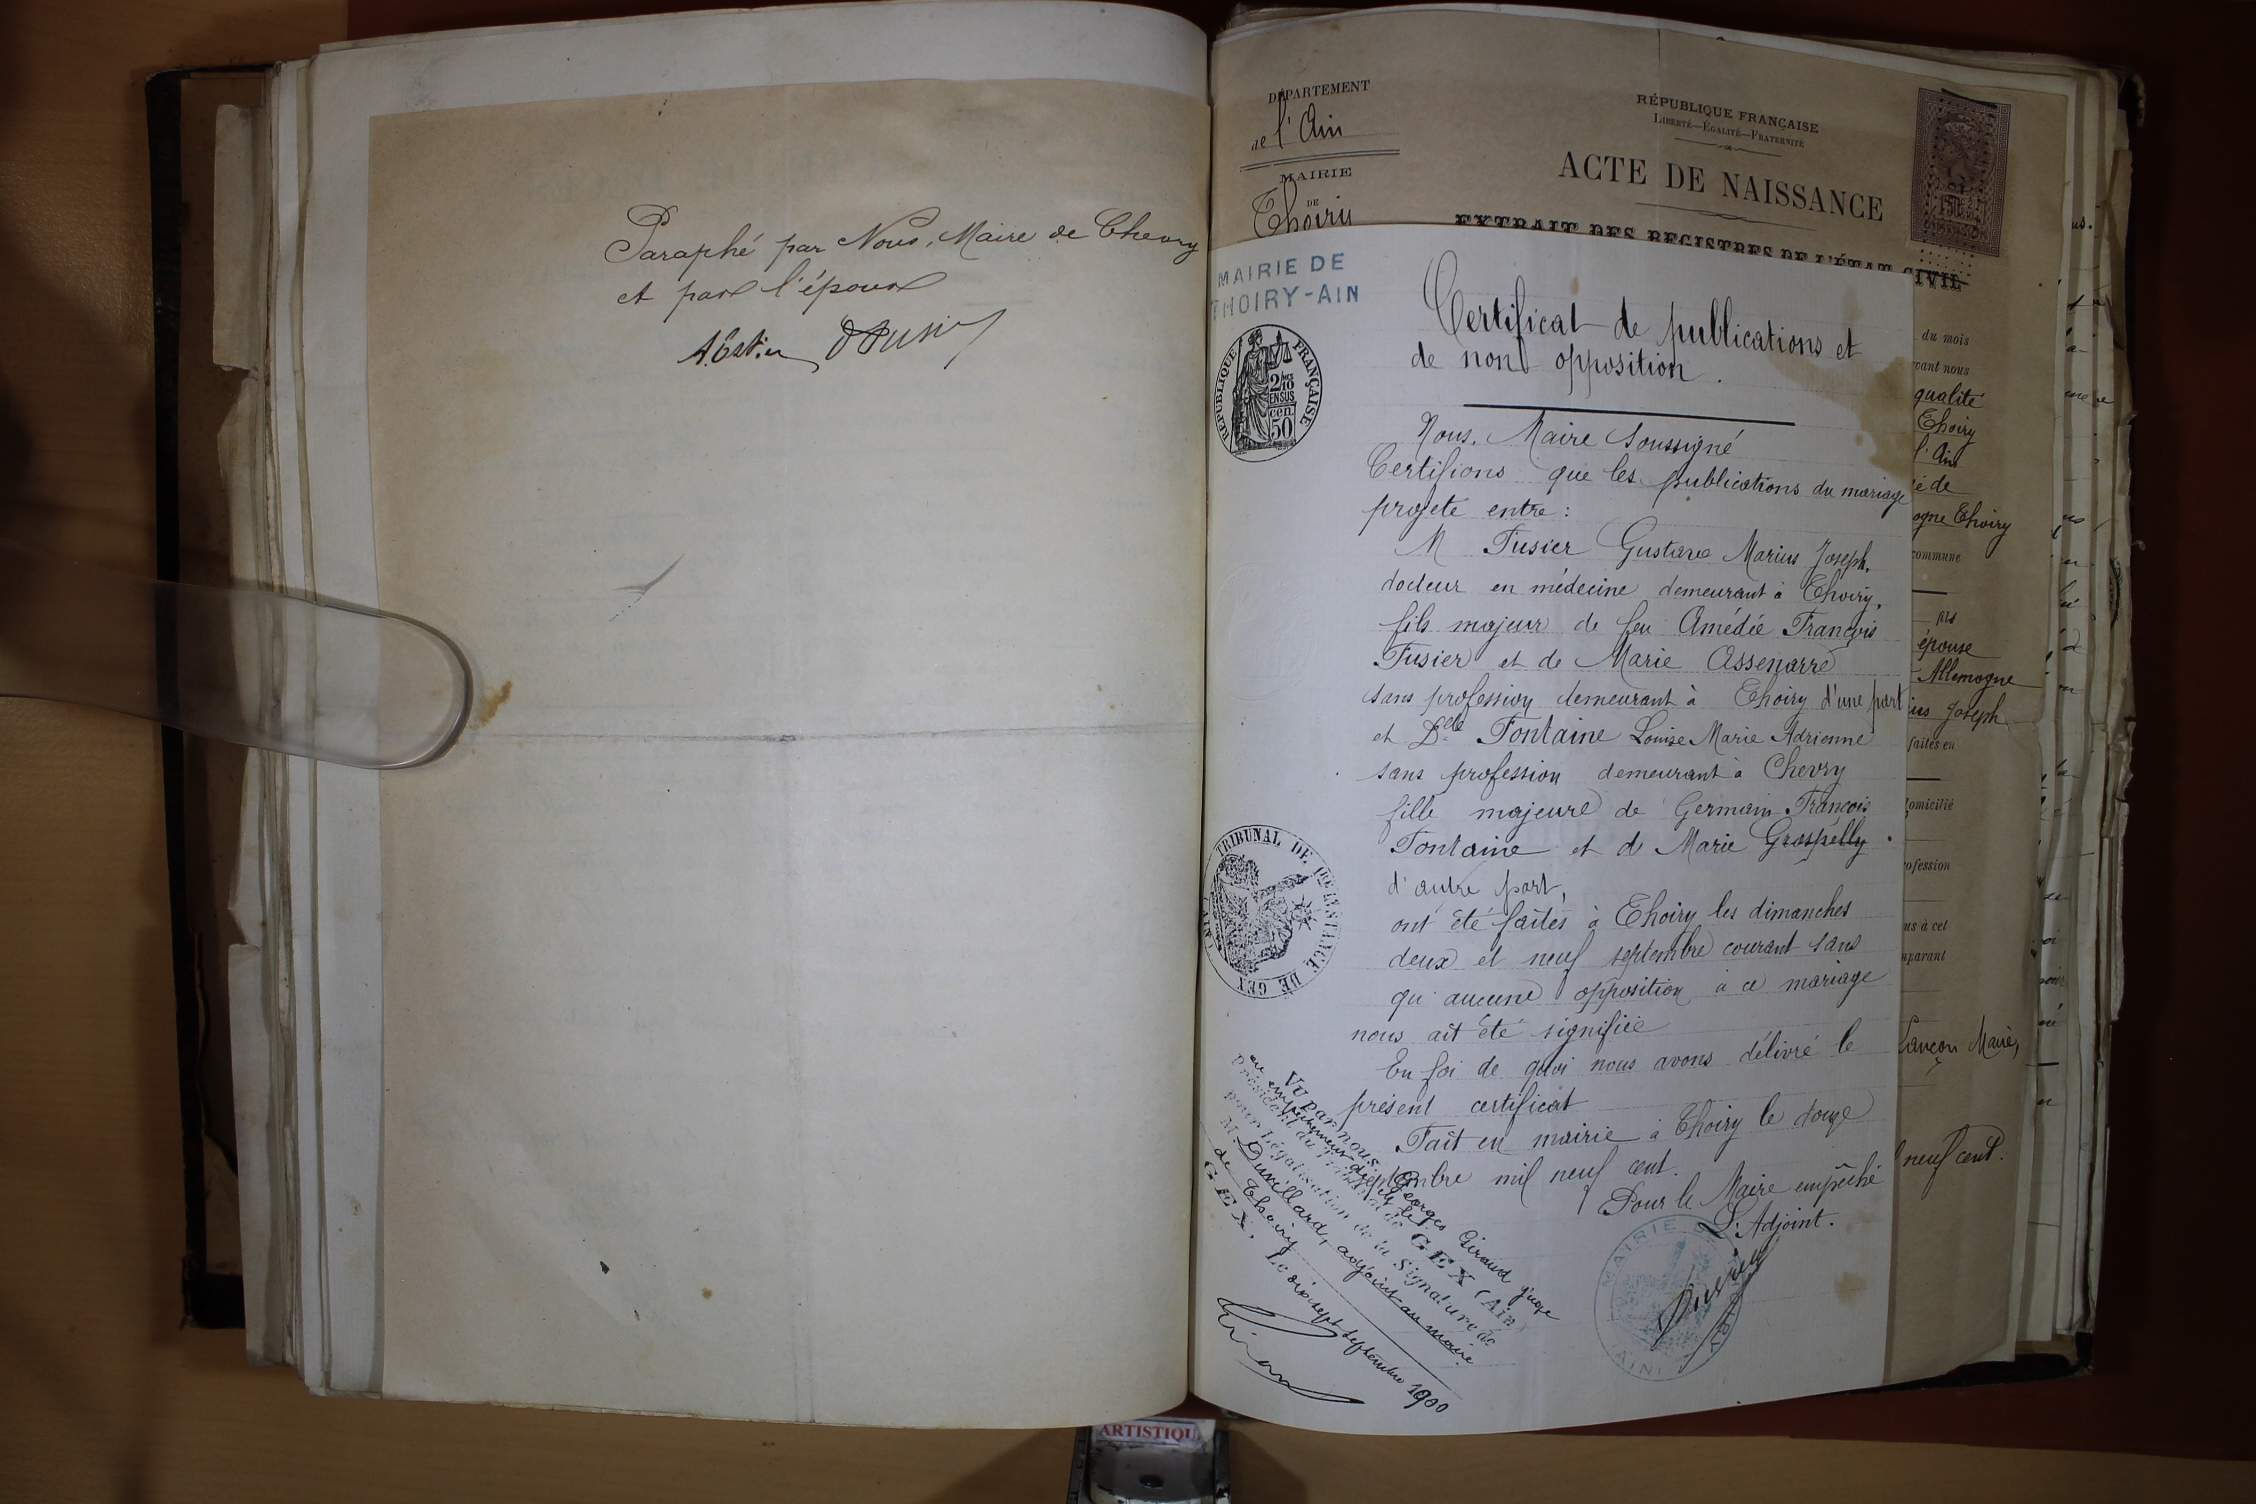 Paraphé par Nous, Maire de Chevry
et par l'époux
DÉPARTEMENT
de l'Ain
MAIRIE
DE
Thoiry
RÉPUBLIQUE FRANÇAISE
LIBERTÉ—ÉGALITÉ—FRATERNITÉ
ACTE DE NAISSANCE
EXTRAIT DES REGISTRES DE L'ÉTAT CIVIL
MAIRIE DE
THOIRY-AIN
RÉPUBLIQUE FRANÇAISE
2/10
EN SUS
50 cen.
Certificat de publications et
de non opposition.
Nous, Maire soussigné
Certifions que les publications du mariage
projeté entre:
M Fusier Gustave Marius Joseph,
docteur en médecine demeurant à Thoiry,
fils majeur de feu Amédée François
Fusier et de Marie Assenarre
sans profession demeurant à Thoiry d'une part
et Delle Fontaine Louise Marie Adrienne
sans profession demeurant à Chevry
fille majeure de Germain François
Fontaine et de Marie Grospelly
d'autre part,
ont été faites à Thoiry les dimanches
deux et neuf septembre courant sans
qu'aucune opposition à ce mariage
nous ait été signifiée
En foi de quoi nous avons délivré le
présent certificat
Fait en mairie à Thoiry le douze
septembre mil neuf cent.
Pour le Maire empêché
L'Adjoint.
TRIBUNAL DE 1RE INSTANCE DE GEX
Vu par nous, Georges Giraud juge
en empêchement du
Président du Tribunal de GEX (Ain)
pour Légalisation de la Signature de
M. Duvillard, adjoint au maire
de Thoiry
GEX, Le dix sept septembre 1900
Giraud
MAIRIE
(AIN)
du mois
vant nous
qualité
Thoiry
l'Ain
é de
ogne Thoiry
commune
fils
épouse
Allemogne
ius Joseph
faites en
domicilié
ofession
us à cet
mparant
Lançon Maire,
neuf cent.
ARTISTIQU